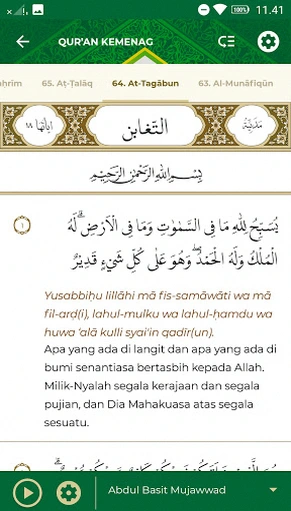 11.41
QUR'AN KEMENAG
aḥrīm 65. Aṭ-Ṭalāq 64. At-Tagābun 63. Al-Munāfiqūn
مَدَنِيَّة التّغابن اٰياتها ١٨
بِسْمِ اللّٰهِ الرَّحْمٰنِ الرَّحِيْمِ
١
يُسَبِّحُ لِلّٰهِ مَا فِى السَّمٰوٰتِ وَمَا فِى الْاَرْضِۚ لَهُ
الْمُلْكُ وَلَهُ الْحَمْدُۖ وَهُوَ عَلٰى كُلِّ شَيْءٍ قَدِيْرٌ
Yusabbiḥu lillāhi mā fis-samāwāti wa mā
fil-arḍ(i), lahul-mulku wa lahul-ḥamdu wa
huwa ‘alā kulli syai'in qadīr(un).
Apa yang ada di langit dan apa yang ada di
bumi senantiasa bertasbih kepada Allah.
Milik-Nyalah segala kerajaan dan segala
pujian, dan Dia Mahakuasa atas segala
sesuatu.
Abdul Basit Mujawwad